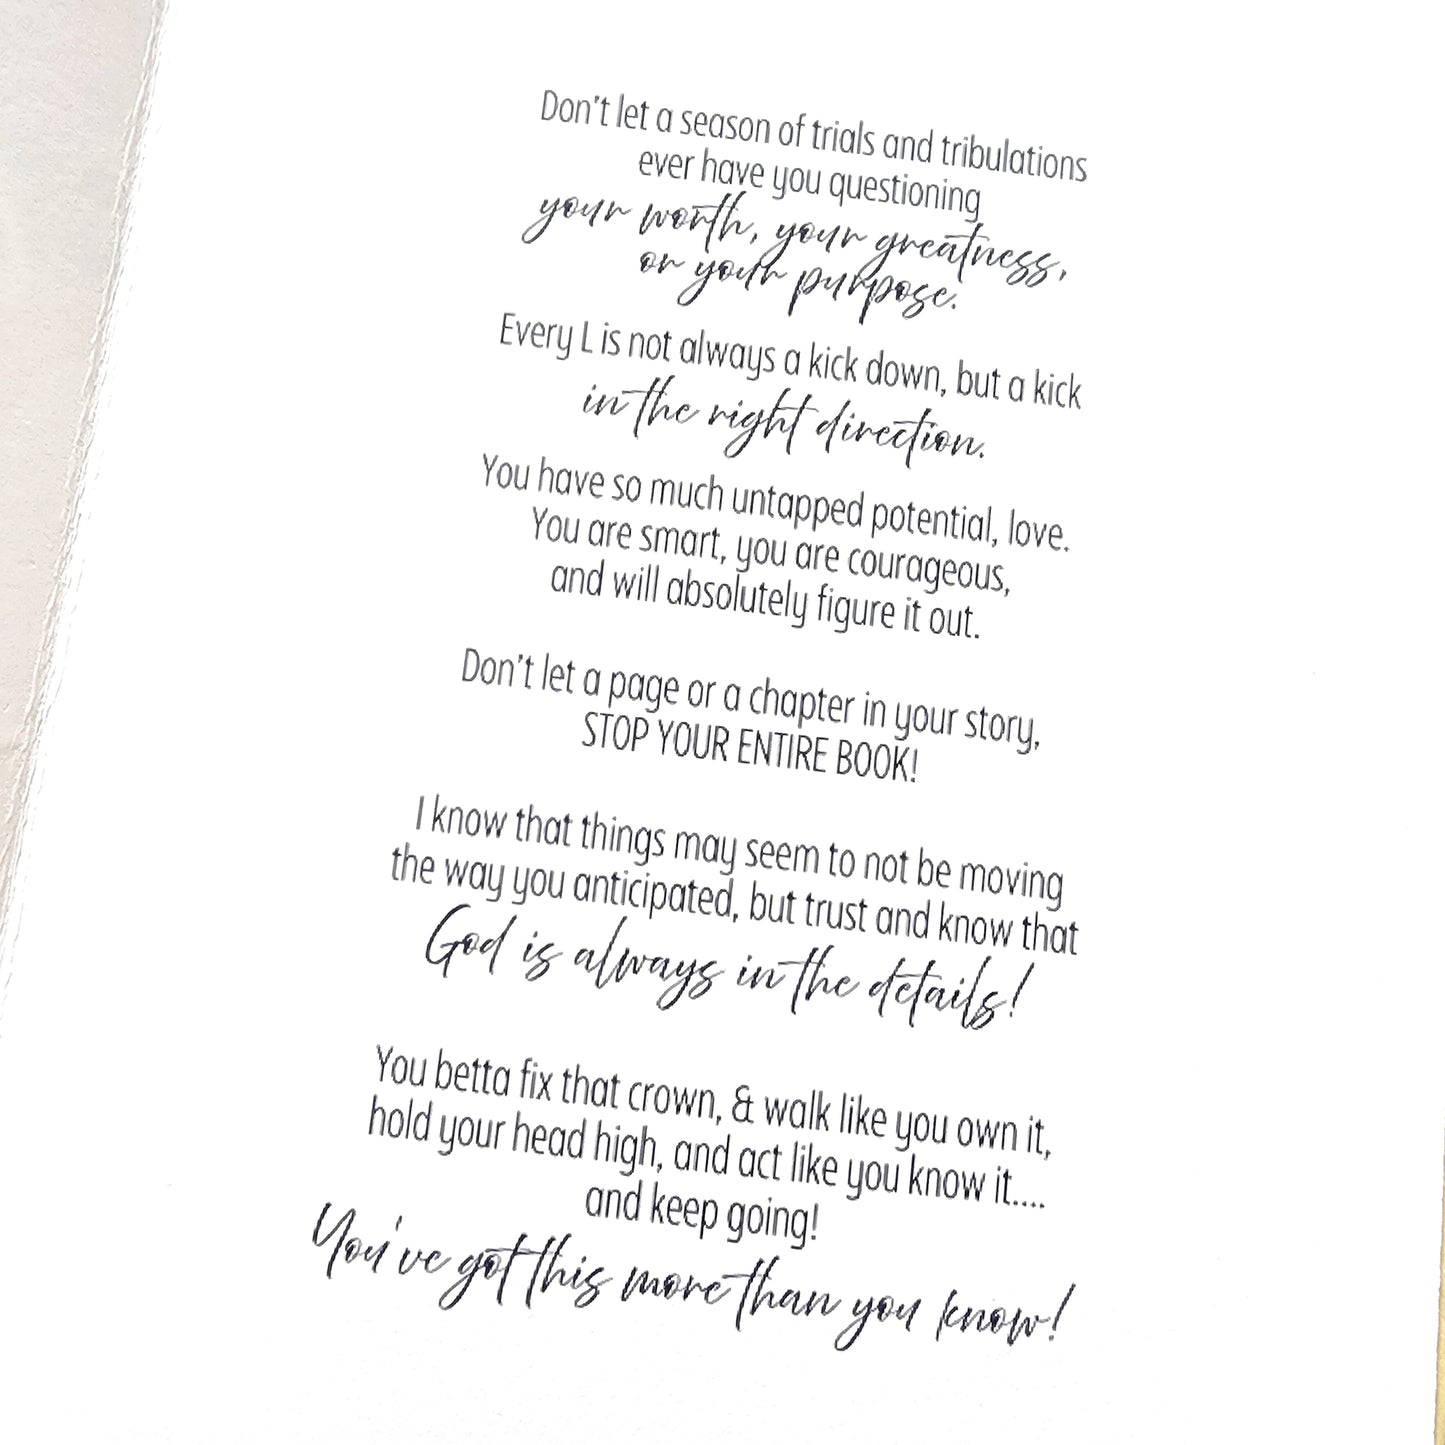 Don't let a season of trials and tribulations
ever have you questioning
your worth, your greatness,
or your purpose.
Every L is not always a kick down, but a kick
in the right direction.
You have so much untapped potential, love.
You are smart, you are courageous,
and will absolutely figure it out.
Don't let a page or a chapter in your story,
STOP YOUR ENTIRE BOOK!
I know that things may seem to not be moving
the way you anticipated, but trust and know that
God is always in the details!
You betta fix that crown, & walk like you own it,
hold your head high, and act like you know it....
and keep going!
You've got this more than you know!